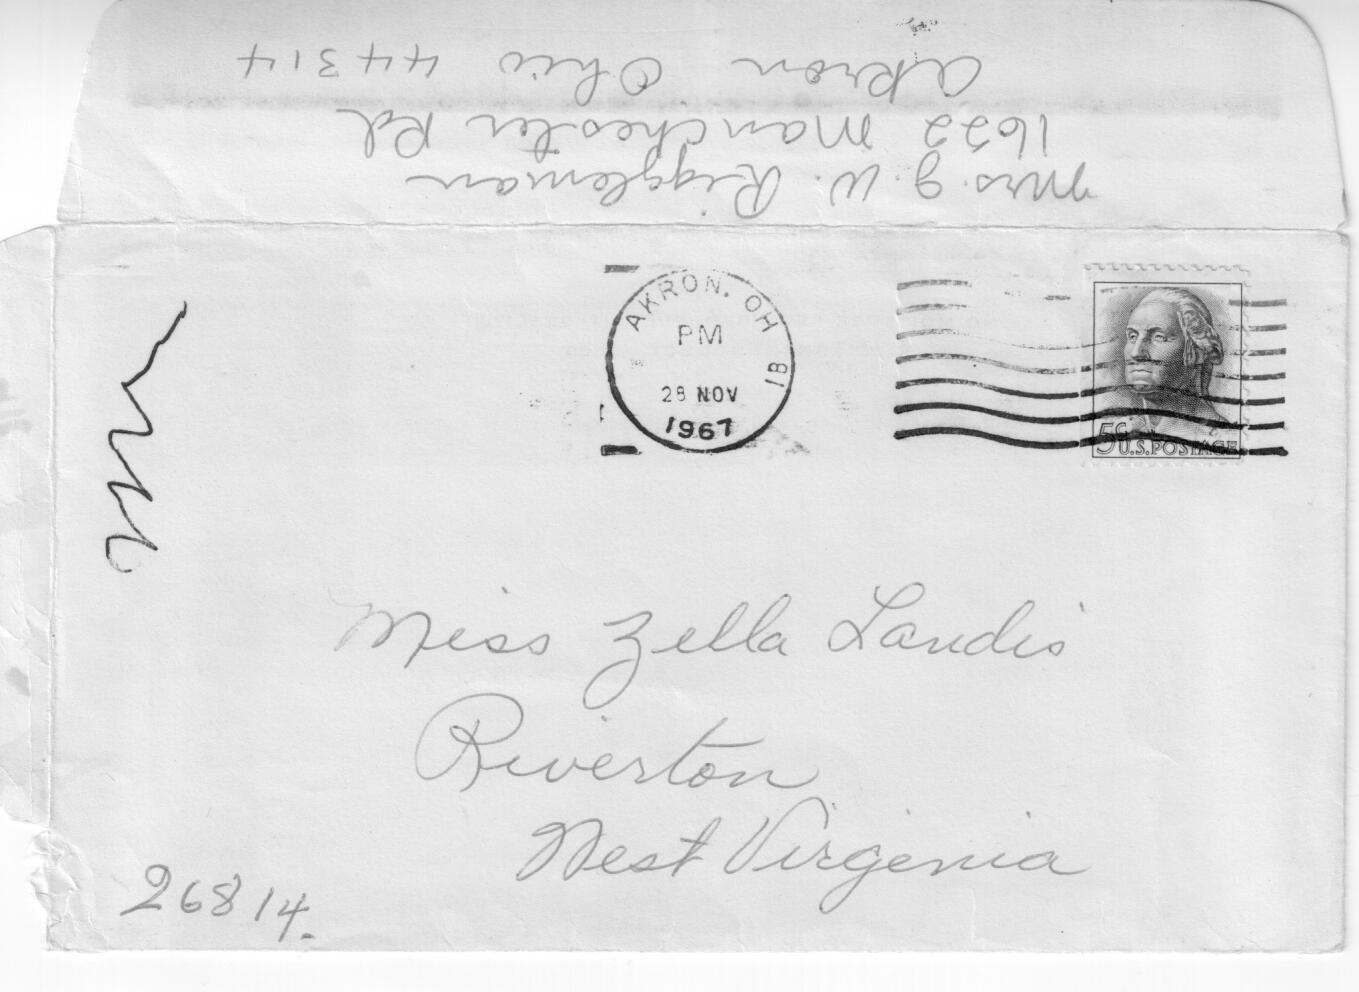 Mrs. J. W. Riggleman
1622 Manchester Rd
Akron Ohio 44314
AKRON, OH
PM
1B
28 NOV
1967
5¢
U.S. POSTAGE
Miss Zella Landis
Riverton
West Virginia
26814.